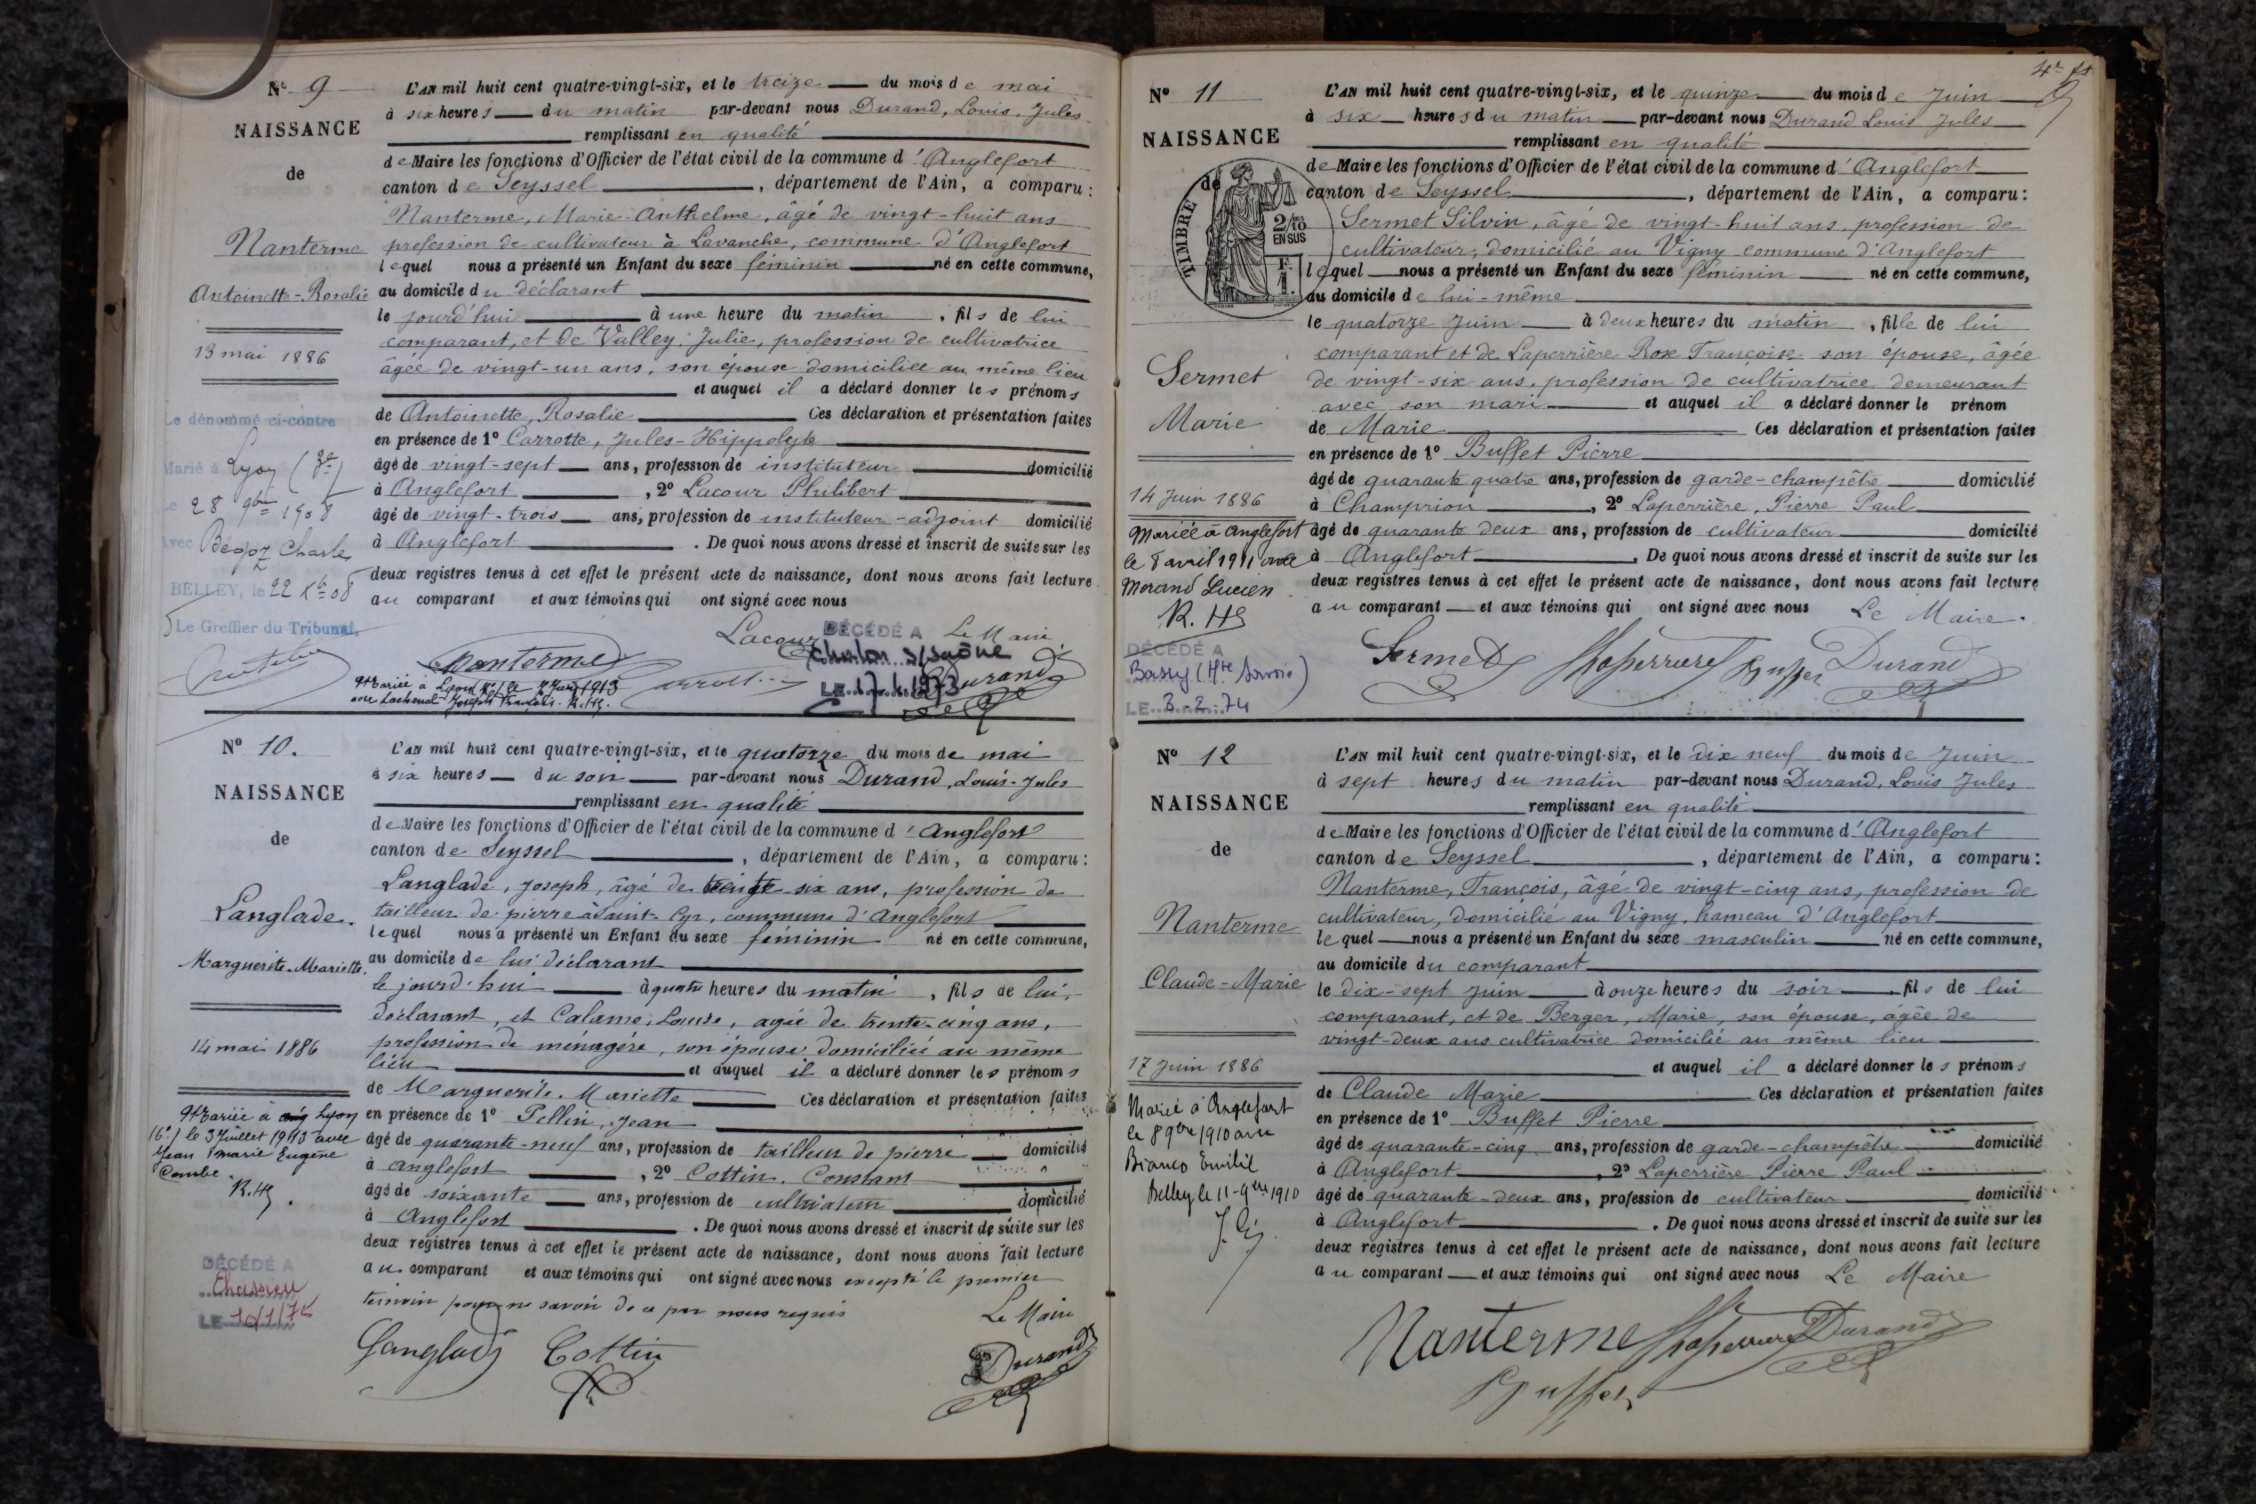 N° 9
NAISSANCE
de
Nanterme
Antoinette-Rosalie
13 mai 1886
Le dénommé ci-contre
Marié à Lyon (3e)
le 28 9bre 1908
avec Bégoz Charles
BELLEY, le 22 Xbre 08
Le Greffier du Tribunal,
L'AN mil huit cent quatre-vingt-six, et le treize du mois de mai
à six heures du matin par-devant nous Durand, Louis, Jules
remplissant en qualité
de Maire les fonctions d'Officier de l'état civil de la commune d'Anglefort
canton de Seyssel, département de l'Ain, a comparu:
Nanterme, Marie-Anthelme, âgé de vingt-huit ans
profession de cultivateur à Lavanche, commune d'Anglefort
lequel nous a présenté un Enfant du sexe féminin né en cette commune,
au domicile du déclarant
le jourd'hui à une heure du matin, fils de lui
comparant, et de Valley, Julie, profession de cultivatrice
âgée de vingt-un ans, son épouse domiciliée au même lieu
et auquel il a déclaré donner les prénoms
de Antoinette, Rosalie Ces déclaration et présentation faites
en présence de 1° Carrotte, Jules-Hippolyte
âgé de vingt-sept ans, profession de instituteur domicilié
à Anglefort, 2° Lacour Philibert
âgé de vingt-trois ans, profession de instituteur-adjoint domicilié
à Anglefort. De quoi nous avons dressé et inscrit de suite sur les
deux registres tenus à cet effet le présent acte de naissance, dont nous avons fait lecture
au comparant et aux témoins qui ont signé avec nous
Lacour Le Maire
DÉCÉDÉ A
Chalon s/Saône
LE 17.1.1973
Nanterme Durand
Mariée à Lyon
avec Lachenal Joseph François. R.Hg.
N° 10.
NAISSANCE
de
Langlade.
Marguerite-Mariette.
14 mai 1886
Mariée à Lyon
(6e) le 3 Juillet 1913 avec
Jean Marie Eugène
Combe.
R.Hg.
DÉCÉDÉ A
Chassieu
LE
L'AN mil huit cent quatre-vingt-six, et le quatorze du mois de mai
à six heures du soir par-devant nous Durand, Louis-Jules
remplissant en qualité
de Maire les fonctions d'Officier de l'état civil de la commune d'Anglefort
canton de Seyssel, département de l'Ain, a comparu:
Langlade, Joseph, âgé de trente six ans, profession de
tailleur de pierre à Saint-Cyr, commune d'Anglefort
lequel nous a présenté un Enfant du sexe féminin né en cette commune,
au domicile de lui déclarant
le jourd'hui à quatre heures du matin, fils de lui,
déclarant, et Calame, Louise, agée de trente-cinq ans,
profession de ménagère, son épouse domiciliée au même
lieu et auquel il a déclaré donner les prénoms
de Marguerite. Mariette Ces déclaration et présentation faites
en présence de 1° Pellin, Jean
âgé de quarante-neuf ans, profession de tailleur de pierre domicilié
à Anglefort, 2° Cottin, Constant
âgé de soixante ans, profession de cultivateur domicilié
à Anglefort. De quoi nous avons dressé et inscrit de suite sur les
deux registres tenus à cet effet le présent acte de naissance, dont nous avons fait lecture
au comparant et aux témoins qui ont signé avec nous excepté le premier
témoin pour ne savoir de ce par nous requis
Le Maire
Langlade Cottin Durand
N° 11
NAISSANCE
de
TIMBRE
2/10 EN SUS
F. 1.
Sermet
Marie
14 Juin 1886
Mariée à Anglefort
le 8 avril 1911 avec
Morand Lucien
R. Hg
DÉCÉDÉ A
Bassy (Hte Savoie)
LE 3-2-74
L'AN mil huit cent quatre-vingt-six, et le quinze du mois de Juin
à six heures du matin par-devant nous Durand Louis Jules
remplissant en qualité
de Maire les fonctions d'Officier de l'état civil de la commune d'Anglefort
canton de Seyssel, département de l'Ain, a comparu:
Sermet Silvin, âgé de vingt-huit ans, profession de
cultivateur, domicilié au Vigny commune d'Anglefort
lequel nous a présenté un Enfant du sexe féminin né en cette commune,
au domicile de lui-même
le quatorze Juin à deux heures du matin, fille de lui
comparant et de Laperrière Rose Françoise son épouse, âgée
de vingt-six ans, profession de cultivatrice demeurant
avec son mari et auquel il a déclaré donner le prénom
de Marie Ces déclaration et présentation faites
en présence de 1° Buffet Pierre
âgé de quarante quatre ans, profession de garde-champêtre domicilié
à Champrion, 2° Laperrière, Pierre Paul
âgé de quarante deux ans, profession de cultivateur domicilié
à Anglefort. De quoi nous avons dressé et inscrit de suite sur les
deux registres tenus à cet effet le présent acte de naissance, dont nous avons fait lecture
au comparant et aux témoins qui ont signé avec nous Le Maire.
Sermet Laperriere Buffet Durand
N° 12
NAISSANCE
de
Nanterme
Claude-Marie
17 Juin 1886
Marié à Anglefort
le 8 9bre 1910 avec
Bianco Emilie
Belley le 11-9bre 1910
L'AN mil huit cent quatre-vingt-six, et le dix neuf du mois de Juin
à sept heures du matin par-devant nous Durand, Louis Jules
remplissant en qualité
de Maire les fonctions d'Officier de l'état civil de la commune d'Anglefort
canton de Seyssel, département de l'Ain, a comparu:
Nanterme, François, âgé de vingt-cinq ans, profession de
cultivateur, domicilié au Vigny, hameau d'Anglefort
lequel nous a présenté un Enfant du sexe masculin né en cette commune,
au domicile du comparant
le dix-sept Juin à onze heures du soir, fils de lui
comparant, et de Berger, Marie, son épouse, âgée de
vingt-deux ans cultivatrice domicilié au même lieu
et auquel il a déclaré donner les prénoms
de Claude Marie Ces déclaration et présentation faites
en présence de 1° Buffet Pierre
âgé de quarante-cinq ans, profession de garde-champêtre domicilié
à Anglefort, 2° Laperrière Pierre Paul
âgé de quarante-deux ans, profession de cultivateur domicilié
à Anglefort. De quoi nous avons dressé et inscrit de suite sur les
deux registres tenus à cet effet le présent acte de naissance, dont nous avons fait lecture
au comparant et aux témoins qui ont signé avec nous Le Maire
Nanterme Laperriere Durand
Buffet